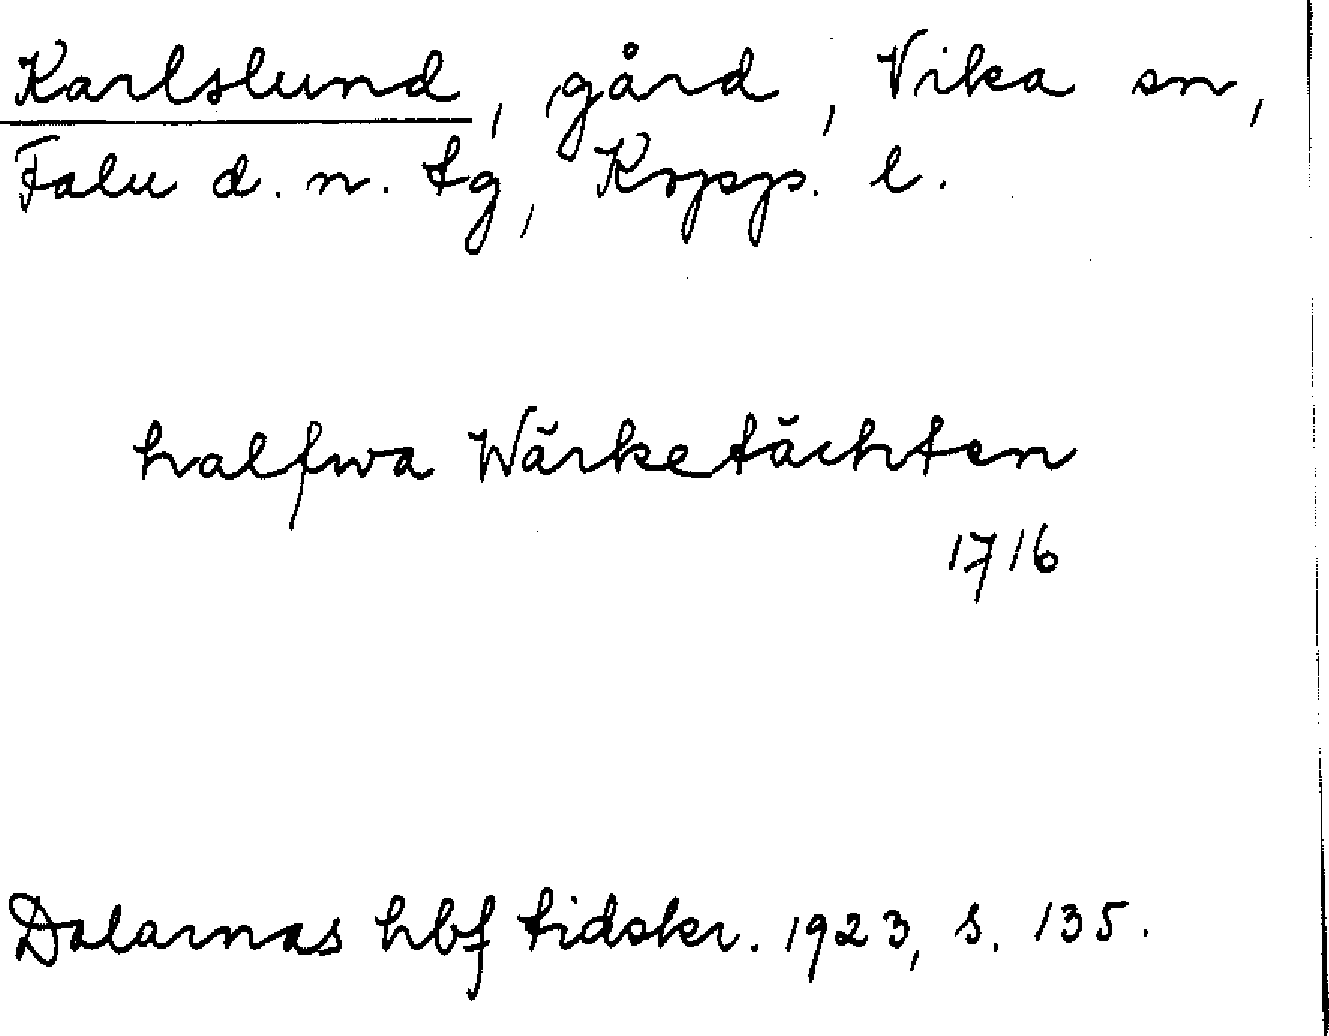 Karlslund, gård, Vika sn,
Falu d. n. tg, Kopp. l.
halfwa Wärketächten
1716
Dalarnas hbf tidskr. 1923, s. 135.